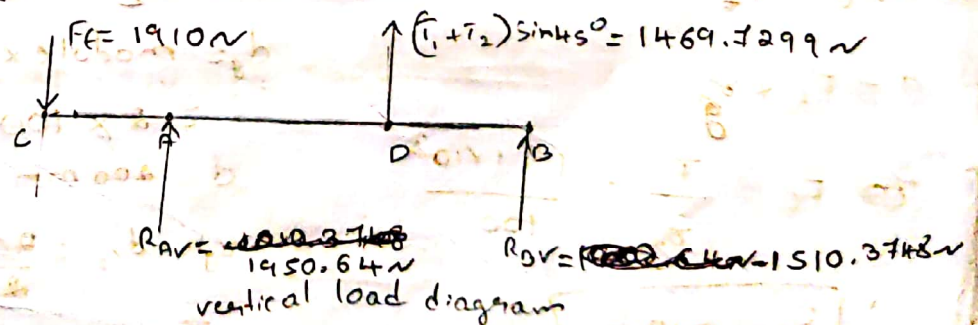 Ft = 1910N
(T₁+T₂) sin45° = 1469.7299N
C
A
D
B
RAV =
1950.64N
RBV = -1510.3748N
vertical load diagram